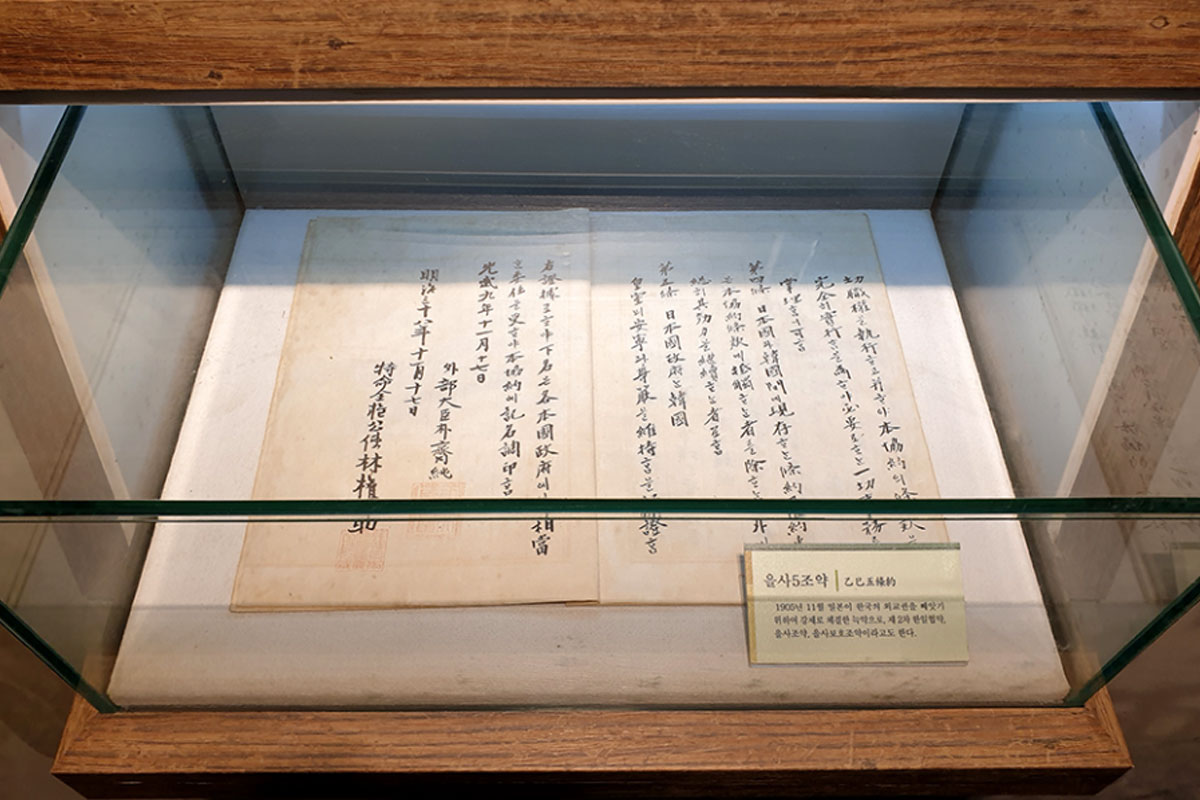 切職權을執行ᄒᆞ고幷ᄒᆞ야本協約의條款을
完全히實行ᄒᆞᆷ을爲ᄒᆞ야必要로ᄒᆞᄂᆞᆫ一切事務를
掌理홈이可홈
第四條 日本國과韓國間에現存ᄒᆞᄂᆞᆫ條約及約束
은本協約條款에抵觸ᄒᆞᄂᆞᆫ者를除ᄒᆞᄂᆞᆫ外
總히其効力을繼續ᄒᆞᄂᆞᆫ者로홈
第五條 日本國政府ᄂᆞᆫ韓國
皇室의安寧과尊嚴을維持홈을保證홈
右證據로ᄒᆞ야下名은各本國政府에셔相當
ᄒᆞᆫ委任을受ᄒᆞ야本協約에記名調印홈
光武九年十一月十七日
外部大臣朴齊純
明治三十八年十一月十七日
特命全權公使林權助
을사5조약 | 乙巳五條約
1905년 11월 일본이 한국의 외교권을 빼앗기
위하여 강제로 체결한 늑약으로, 제 2차 한일협약,
을사조약, 을사보호조약이라고도 한다.